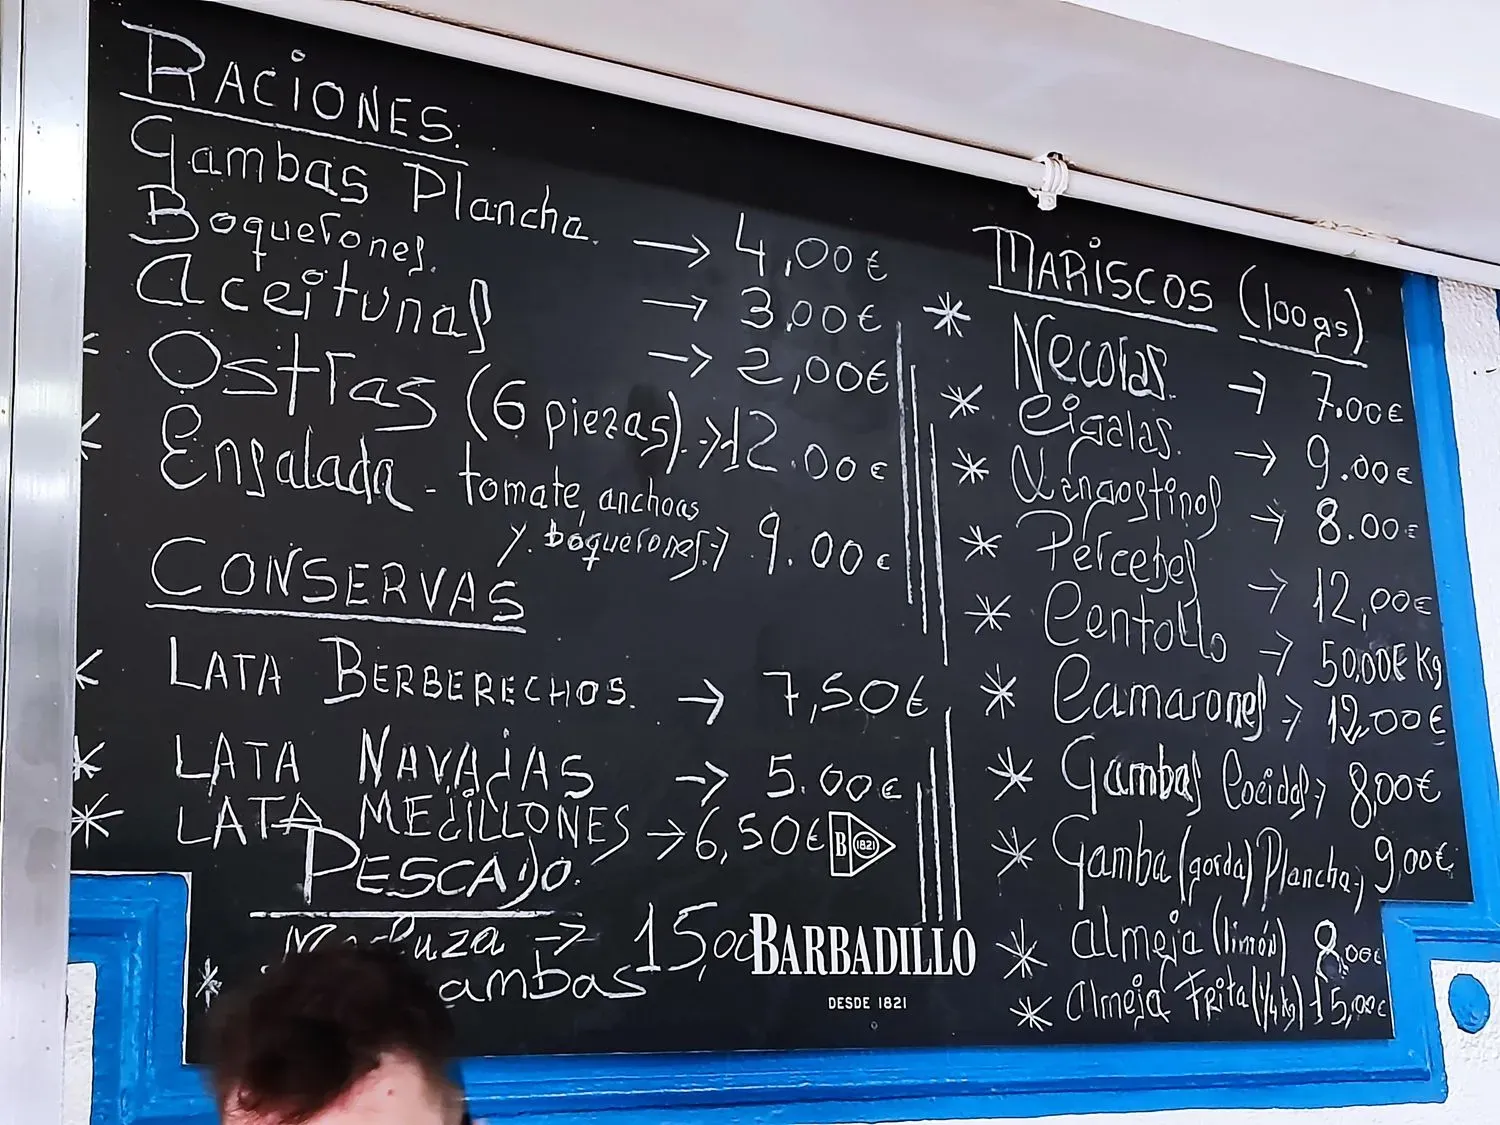 RACIONES.
Gambas Plancha. → 4,00€
Boquerones. → 3,00€
Aceitunas → 2,00€
Ostras (6 piezas). → 12.00€
Ensalada - tomate, anchoas
y boquerones. → 9.00€
CONSERVAS
LATA BERBERECHOS. → 7,50€
LATA NAVAJAS → 5.00€
LATA MEJILLONES → 6,50€
PESCADO.
→ 15,00
MARISCOS (100gs)
* Necoras. → 7.00€
* Cigalas. → 9.00€
* Langostinos → 8.00€
* Percebes → 12,00€
* Centollo → 50,00€ Kg
* Camarones → 12,00€
* Gambas Cocidas → 8,00€
* Gamba (gorda) Plancha → 9,00€
* almeja (limón) 8,00€
* almeja Frita (1/4 kg) 15,00€
B 1821
BARBADILLO
DESDE 1821